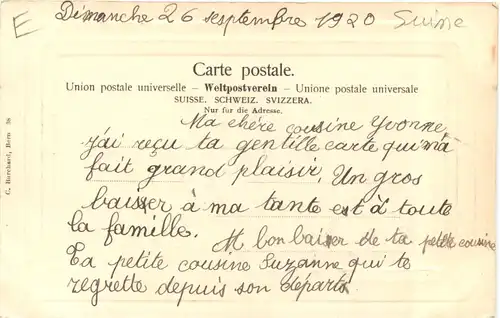 E Dimanche 26 septembre 1920 Suisse
Carte postale.
Union postale universelle – Weltpostverein – Unione postale universale
SUISSE. SCHWEIZ. SVIZZERA.
Nur für die Adresse.
Ma chére cousine Yvonne,
j'ai reçu ta gentille carte qui m'a
fait grand plaisir. Un gros
baiser à ma tante est à toute
la famille.
bon baiser de ta petite cousine
Ta petite cousine Suzanne qui te
regrette depuis son départ.
C. Burckard, Bern 38